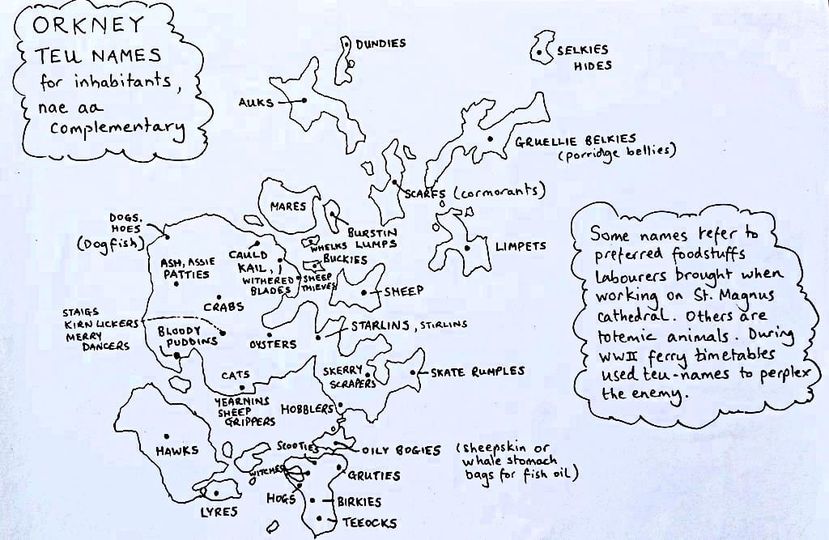 ORKNEY
TEU NAMES
for inhabitants,
nae aa
complementary
DUNDIES
SELKIES
HIDES
AUKS
GRUELLIE BELKIES
(porridge bellies)
SCARFS (cormorants)
MARES
BURSTIN
LUMPS
WHELKS
BUCKIES
LIMPETS
DOGS,
HOES
(Dogfish)
CAULD
KAIL,
ASH, ASSIE
PATTIES
WITHERED
BLADES
SHEEP
THIEVES
SHEEP
CRABS
STAIGS
KIRN LICKERS
MERRY
DANCERS
BLOODY
PUDDINS
OYSTERS
STARLINS, STIRLINS
CATS
YEARNINS
SHEEP
GRIPPERS
SKERRY
SCRAPERS
SKATE RUMPLES
HOBBLERS
HAWKS
SCOOTIES
OILY BOGIES
(sheepskin or
whale stomach
bags for fish oil)
WITCHES
GRUTIES
HOGS
BIRKIES
LYRES
TEEOCKS
Some names refer to
preferred foodstuffs
labourers brought when
working on St. Magnus
cathedral. Others are
totemic animals. During
WWII ferry timetables
used teu-names to perplex
the enemy.